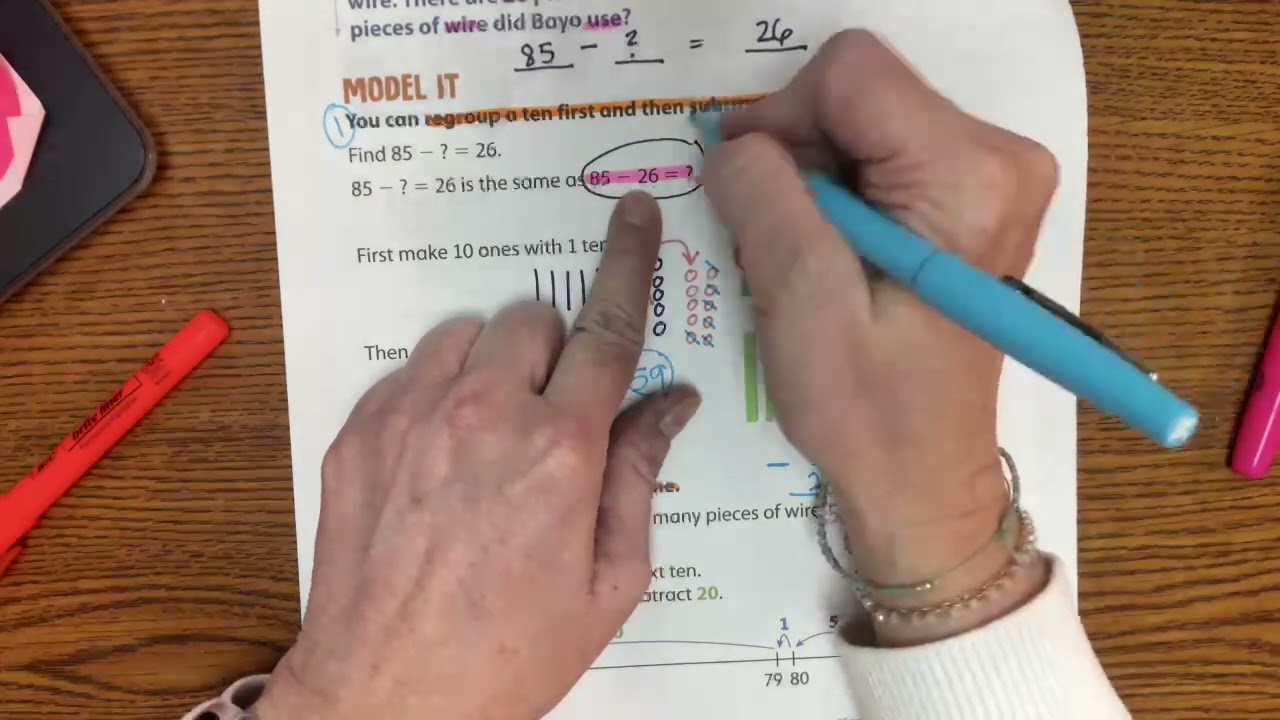 pieces of wire did Bayo use?
85 - ? = 26
MODEL IT
1 You can regroup a ten first and then
Find 85 − ? = 26.
85 − ? = 26 is the same as 85 − 26 = ?
First make 10 ones with 1 ten
Then
59
many pieces of wire
ten.
20.
1 5
79 80